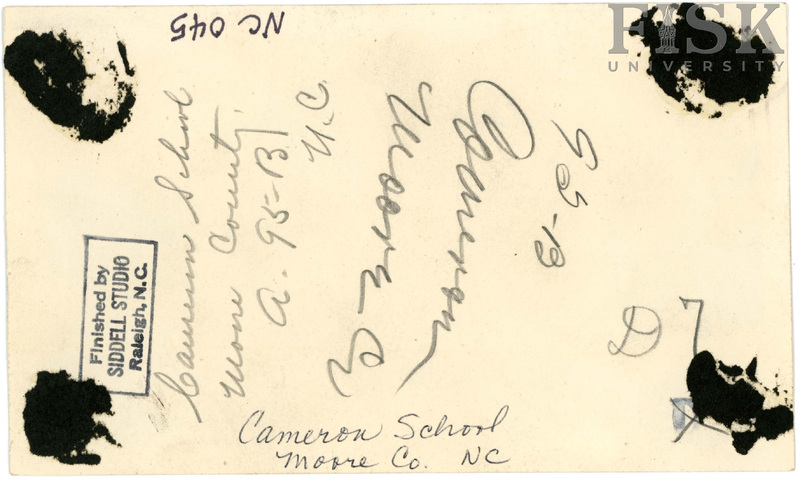 NC 045
FISK
UNIVERSITY
Cameron School
Moore County
A. 95-B
N.C.
Cameron
Moore
95-B
Finished by
SIDDELL STUDIO
Raleigh, N.C.
D 7
Cameron School
Moore Co. NC